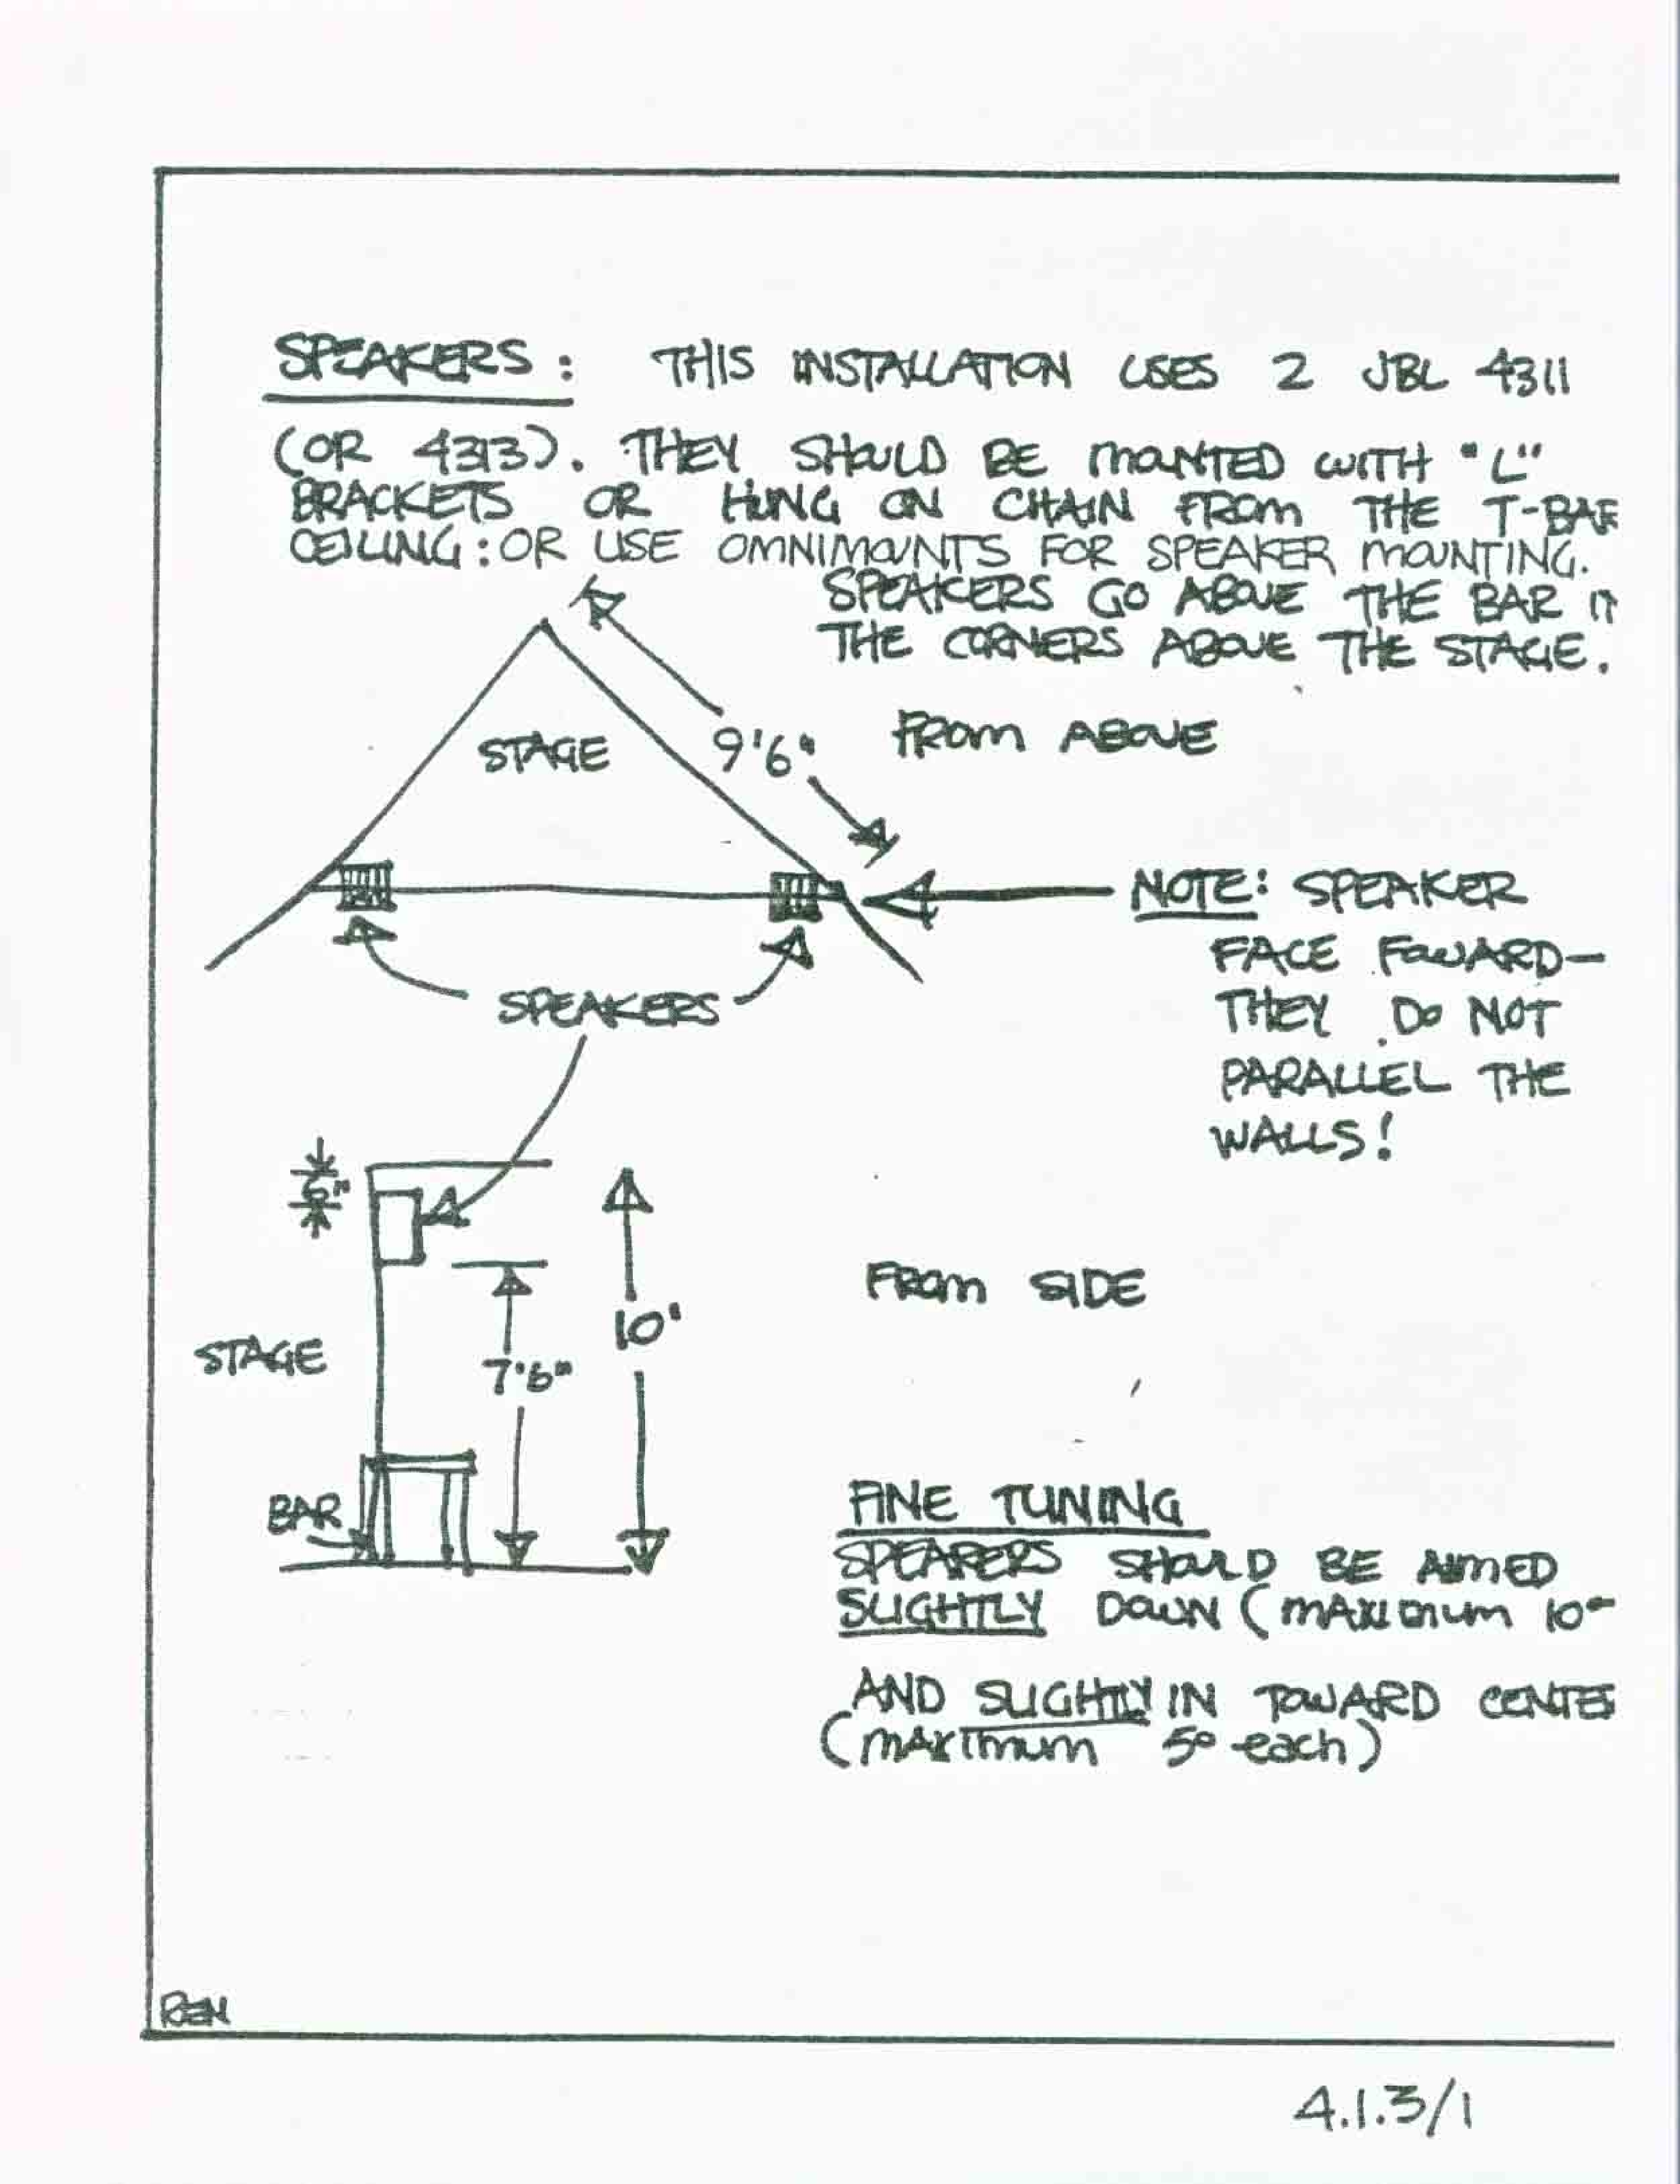 SPEAKERS: THIS INSTALLATION USES 2 JBL 4311
(OR 4313). THEY SHOULD BE MOUNTED WITH "L"
BRACKETS OR HUNG ON CHAIN FROM THE T-BAR
CEILING: OR USE OMNIMOUNTS FOR SPEAKER MOUNTING.
SPEAKERS GO ABOVE THE BAR
THE CORNERS ABOVE THE STAGE.
STAGE
9'6"
FROM ABOVE
NOTE: SPEAKER
FACE FOWARD-
THEY DO NOT
PARALLEL THE
WALLS!
SPEAKERS
6"
10'
FROM SIDE
STAGE
7'6"
BAR
FINE TUNING
SPEAKERS SHOULD BE AIMED
SLIGHTLY DOWN (MAXIMUM 10°
AND SLIGHTLY IN TOWARD CENTE
(MAXIMUM 5° each)
4.1.3/1